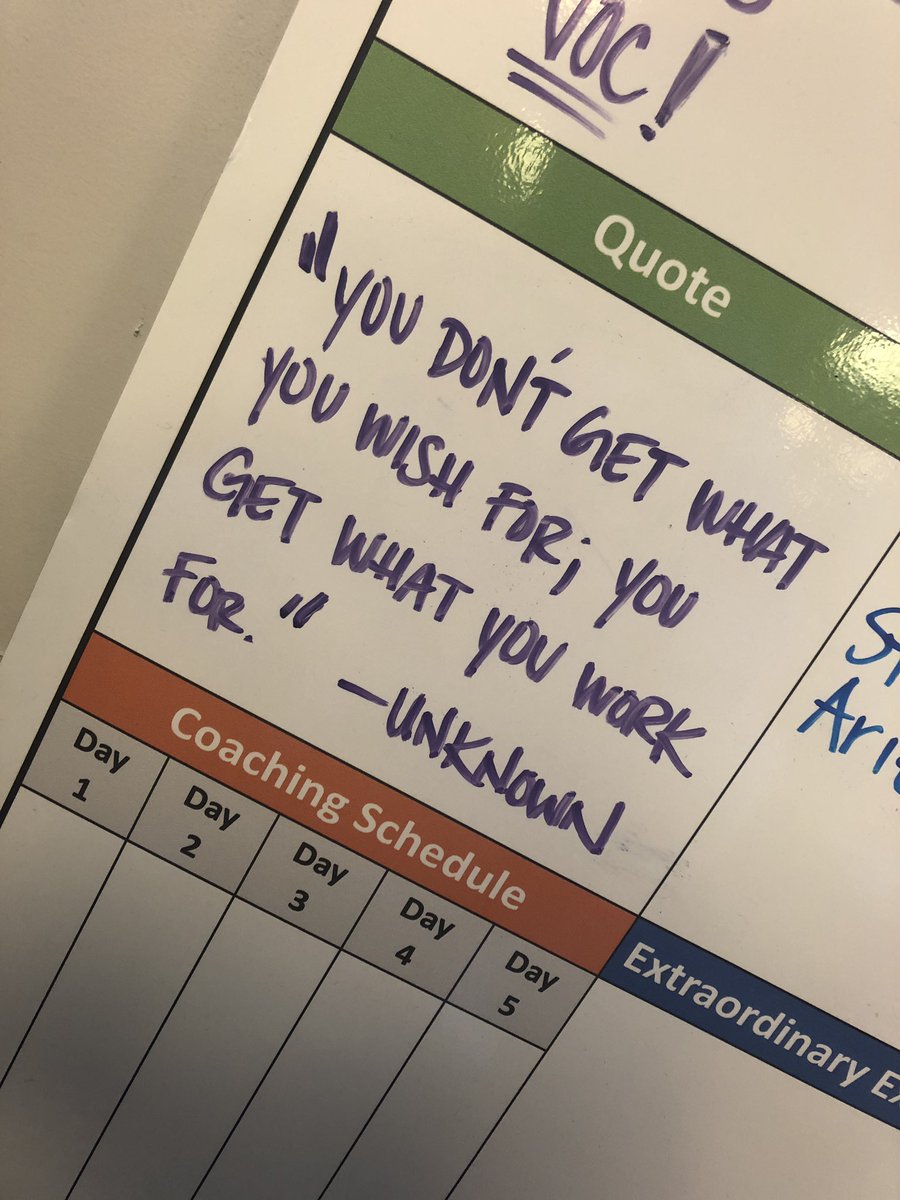 VOC!
Quote
"YOU DON'T GET WHAT
YOU WISH FOR; YOU
GET WHAT YOU WORK
FOR."
—UNKNOWN
Coaching Schedule
Day 1
Day 2
Day 3
Day 4
Day 5
Extraordinary